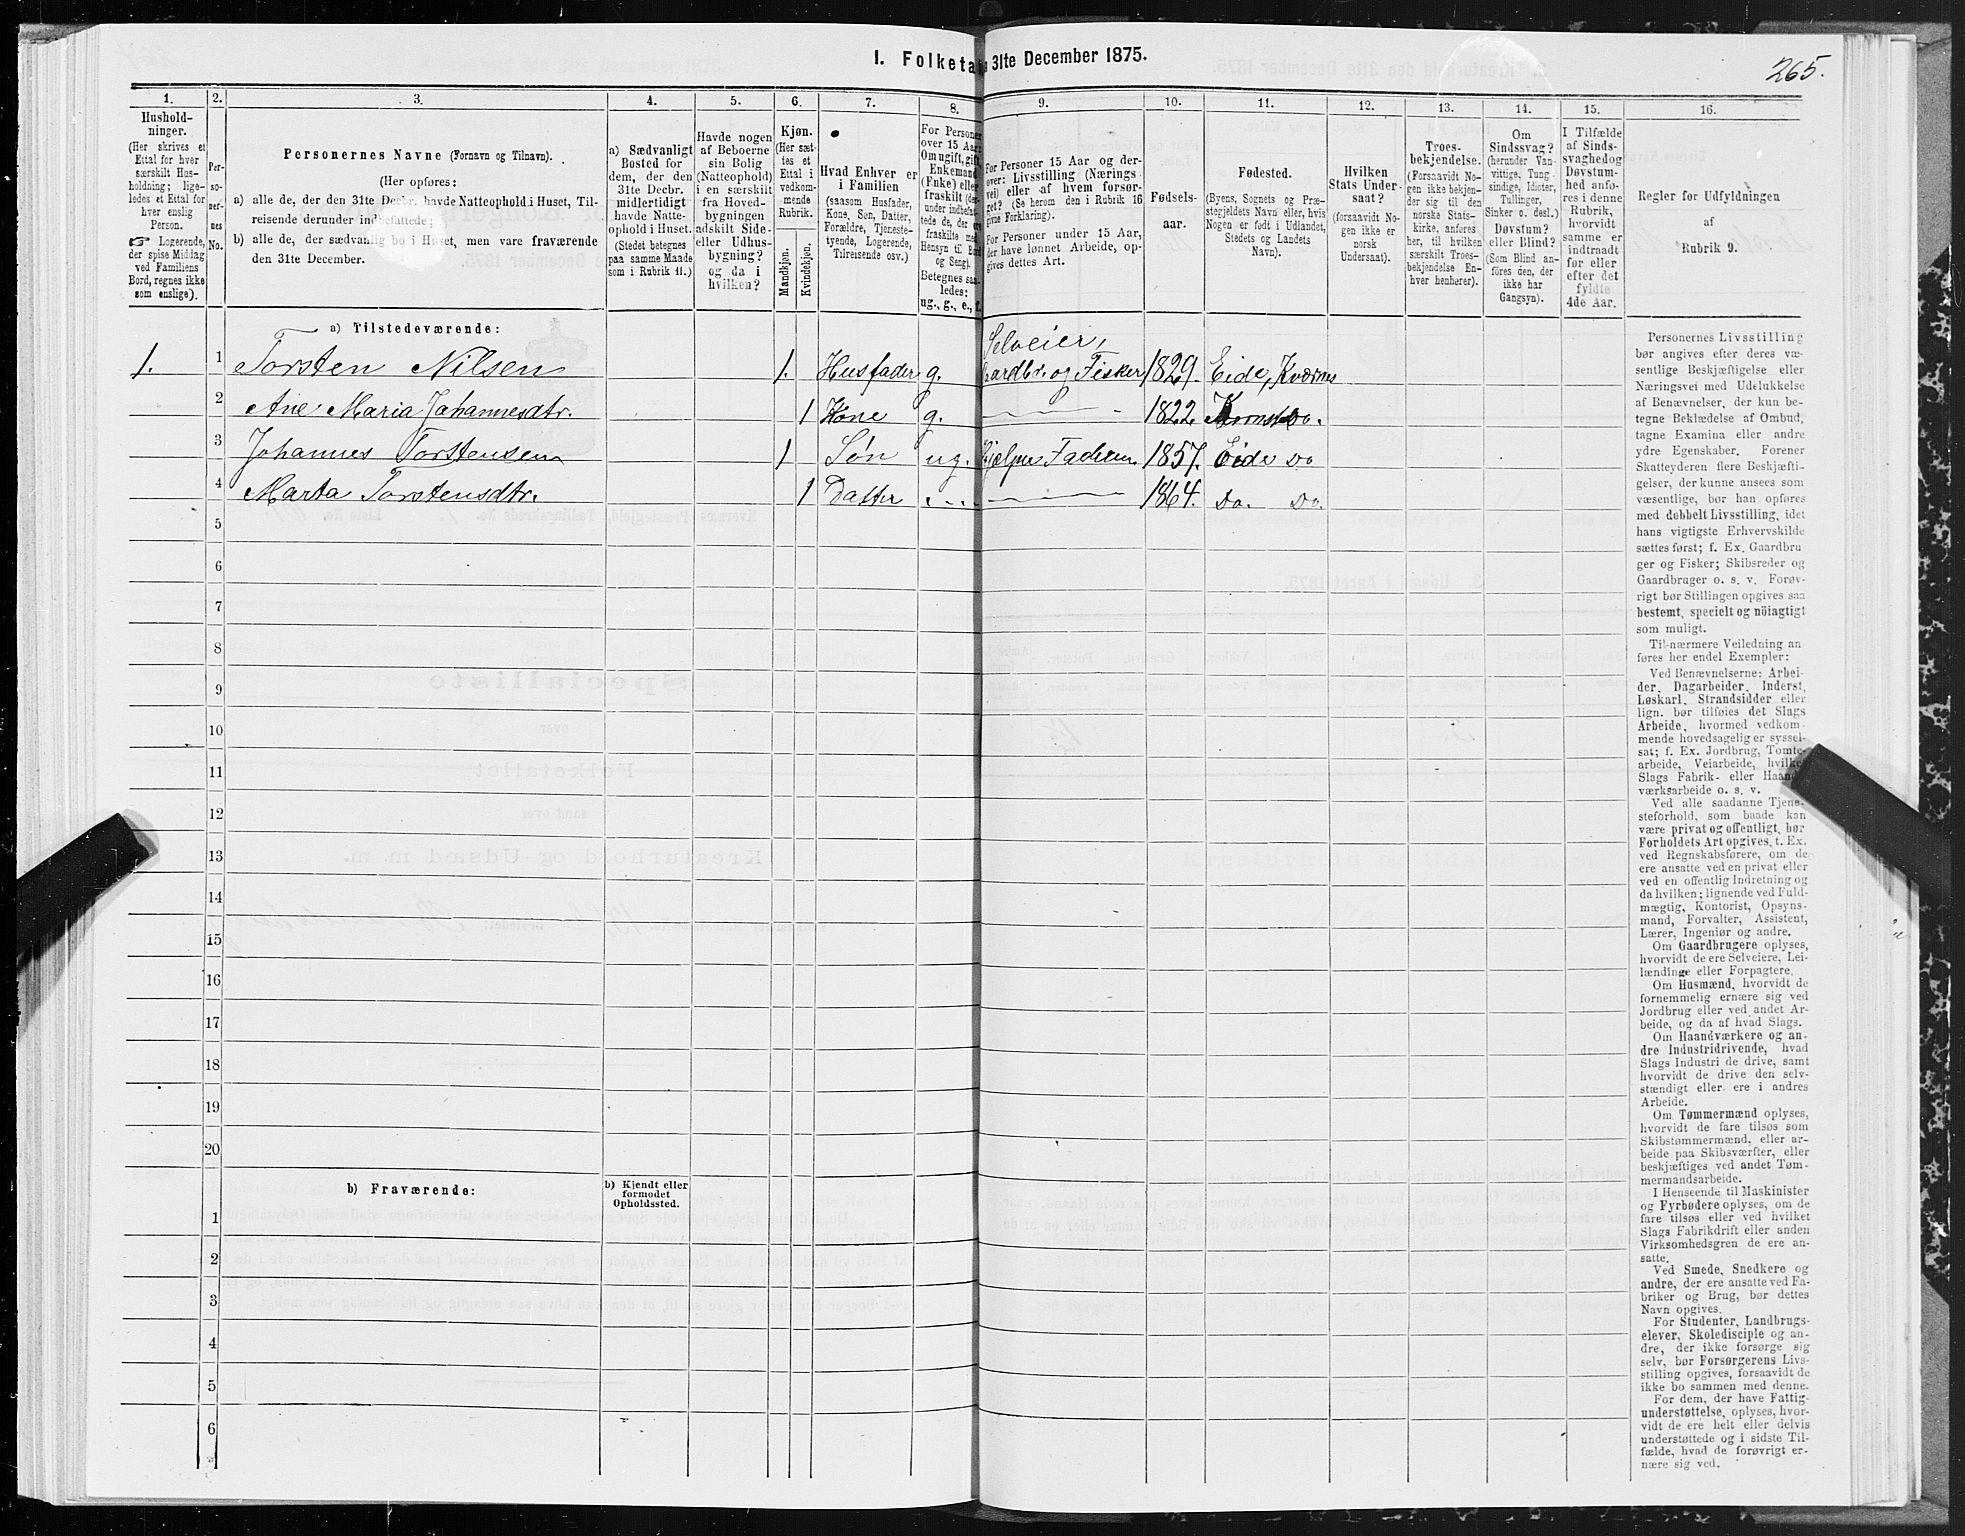 I. Folketa 31te December 1875.
265.
1. 2. 3. 4. 5. 6. 7. 8. 9. 10. 11. 12. 13. 14. 15. 16.
Hushold-
ninger.
(Her skrives et
Ettal for hver
særskilt Hus-
holdning; lige-
ledes et Ettal for
hver enslig
Person.
☞ Logerende,
der spise Middag
ved Familiens
Bord, regnes ikke
som enslige).
Per-
so-
ner-
nes
No.
Personernes Navne (Fornavn og Tilnavn).
(Her opføres:
a) alle de, der den 31te Decbr. havde Natteophold i Huset, Til-
reisende derunder indbefattede;
b) alle de, der sædvanlig bo i Huset, men vare fraværende
den 31te December.
a) Sædvanligt
Bosted for
dem, der den
31te Decbr.
midlertidigt
havde Natte-
ophold i Huset.
(Stedet betegnes
paa samme Maade
som i Rubrik 11.)
Havde nogen
af Beboerne
sin Bolig
(Natteophold)
i en særskilt
fra Hoved-
bygningen
adskilt Side-
eller Udhus-
bygning?
og da i
hvilken?
Kjøn.
(Her sæt-
tes et
Ettal i
vedkom-
mende
Rubrik.
Mandkjøn.
Kvindekjøn.
Hvad Enhver er
i Familien
(saasom Husfader,
Kone, Søn, Datter,
Forældre, Tjeneste-
tyende, Logerende,
Tilreisende osv.)
For Personer
over 15 Aar:
Om ugift, gift,
Enkemand
(Enke) eller
fraskilt (der-
under indbefat-
tede de, der ere
fraskilte med
Hensyn til Bord
og Seng).
Betegnes saa-
ledes:
ug., g., e., f.
For Personer 15 Aar og der-
over: Livsstilling (Nærings-
vei) eller af hvem forsør-
get? (Se herom den i Rubrik 16
givne Forklaring).
For Personer under 15 Aar,
der have lønnet Arbeide, op-
gives dettes Art.
Fødsels-
aar.
Fødested.
(Byens, Sognets og Præ-
stegjeldets Navn eller, hvis
Nogen er født i Udlandet,
Stedets og Landets
Navn).
Hvilken
Stats Under-
saat?
(forsaavidt No-
gen ikke er
norsk
Undersaat).
Troes-
bekjendelse.
(Forsaavidt No-
gen ikke bekjen-
der sig til den
norske Stats-
kirke, anføres
her, til hvilken
særskilt Troes-
bekjendelse En-
hver henhører).
Om
Sindssvag?
(herunder Van-
vittige, Tung-
sindige, Idioter,
Tullinger,
Sinker o. desl.)
Døvstum?
eller Blind?
(Som Blind an-
føres den, der
ikke har
Gangsyn).
I Tilfælde
af Sinds-
svaghed og
Døvstum-
hed anfø-
res i denne
Rubrik,
hvorvidt
samme er
indtraadt
før eller
efter det
fyldte
4de Aar.
Regler for Udfyldningen
af
Rubrik 9.
a) Tilstedeværende:
Selveier,
1. 1 Torsten Nilsen 1. Husfader g. Gaardbr. og Fisker 1829. Eide, Kværnes
2 Ane Maria Johannesdtr. 1 Kone g. 1822. Do.
3 Johannes Torstensen 1 Søn ug. Hjælper Faderen 1857. Eide Do
4 Marta Torstensdtr. 1 Datter 1864. Do. Do.
5
6
7
8
9
10
11
12
13
14
15
16
17
18
19
20
b) Fraværende:
b) Kjendt eller
formodet
Opholdssted.
1
2
3
4
5
6
Personernes Livsstilling
bør angives efter deres væ-
sentlige Beskjæftigelse eller
Næringsvei med Udelukkelse
af Benævnelser, der kun be-
tegne Beklædelse af Ombud,
tagne Examina eller andre
ydre Egenskaber. Forener
Skatteyderen flere Beskjæfti-
gelser, der kunne ansees som
væsentlige, bør han opføres
med dobbelt Livsstilling, idet
hans vigtigste Erhvervskilde
sættes først; f. Ex. Gaardbru
ger og Fisker; Skibsreder og
Gaardbruger o. s. v. Forøv-
rigt bør Stillingen opgives saa
bestemt, specielt og nöiagtigt
som muligt.
Til nærmere Veiledning an
føres her endel Exempler:
Ved Benævnelserne: Arbei-
der, Dagarbeider, Inderst,
Løskarl, Strandsidder eller
lign. bør tilføies det Slags
Arbeide, hvormed vedkom-
mende hovedsagelig er syssel-
sat; f. Ex. Jordbrug, Tomte-
arbeide, Veiarbeide, hvilket
Slags Fabrik- eller Haand-
værksarbeide o. s. v.
Ved alle saadanne Tjene-
steforhold, som baade kan
være privat og offentligt, bør
Forholdets Art opgives, t. Ex.
ved Regnskabsførere, om de
ere ansatte ved en privat eller
ved en offentlig Indretning og
da hvilken; lignende ved Fuld-
mægtig, Kontorist, Opsyns-
mand, Forvalter, Assistent,
Lærer, Ingeniør og andre.
Om Gaardbrugere oplyses,
hvorvidt de ere Selveiere, Lei-
lændinge eller Forpagtere.
Om Husmænd, hvorvidt de
fornemmelig ernære sig ved
Jordbrug eller ved andet Ar-
beide, og da af hvad Slags.
Om Haandværkere og an-
dre Industridrivende, hvad
Slags Industri de drive, samt
hvorvidt de drive den selv-
stændigt eller ere i andres
Arbeide.
Om Tømmermænd oplyses,
hvorvidt de fare tilsøs som
Skibstømmermænd, eller ar-
beide paa Skibsværfter, eller
beskjæftiges ved andet Tøm-
mermandsarbeide.
I Henseende til Maskinister
og Fyrbødere oplyses, om de
fare tilsøs eller ved hvilket
Slags Fabrikdrift eller anden
Virksomhedsgren de ere an-
satte.
Ved Smede, Snedkere og
andre, der ere ansatte ved Fa-
briker og Brug, bør dettes
Navn opgives.
For Studenter, Landbrugs-
elever, Skoledisciple og an-
dre, der ikke forsørge sig
selv, bør Forsørgerens Livs-
stilling opgives, forsaavidt de
ikke bo sammen med denne.
For dem, der have Fattig-
understøttelse, oplyses, hvor-
vidt de ere helt eller delvis
understøttede og i sidste Til-
fælde, hvad de forøvrigt er-
nære sig ved.